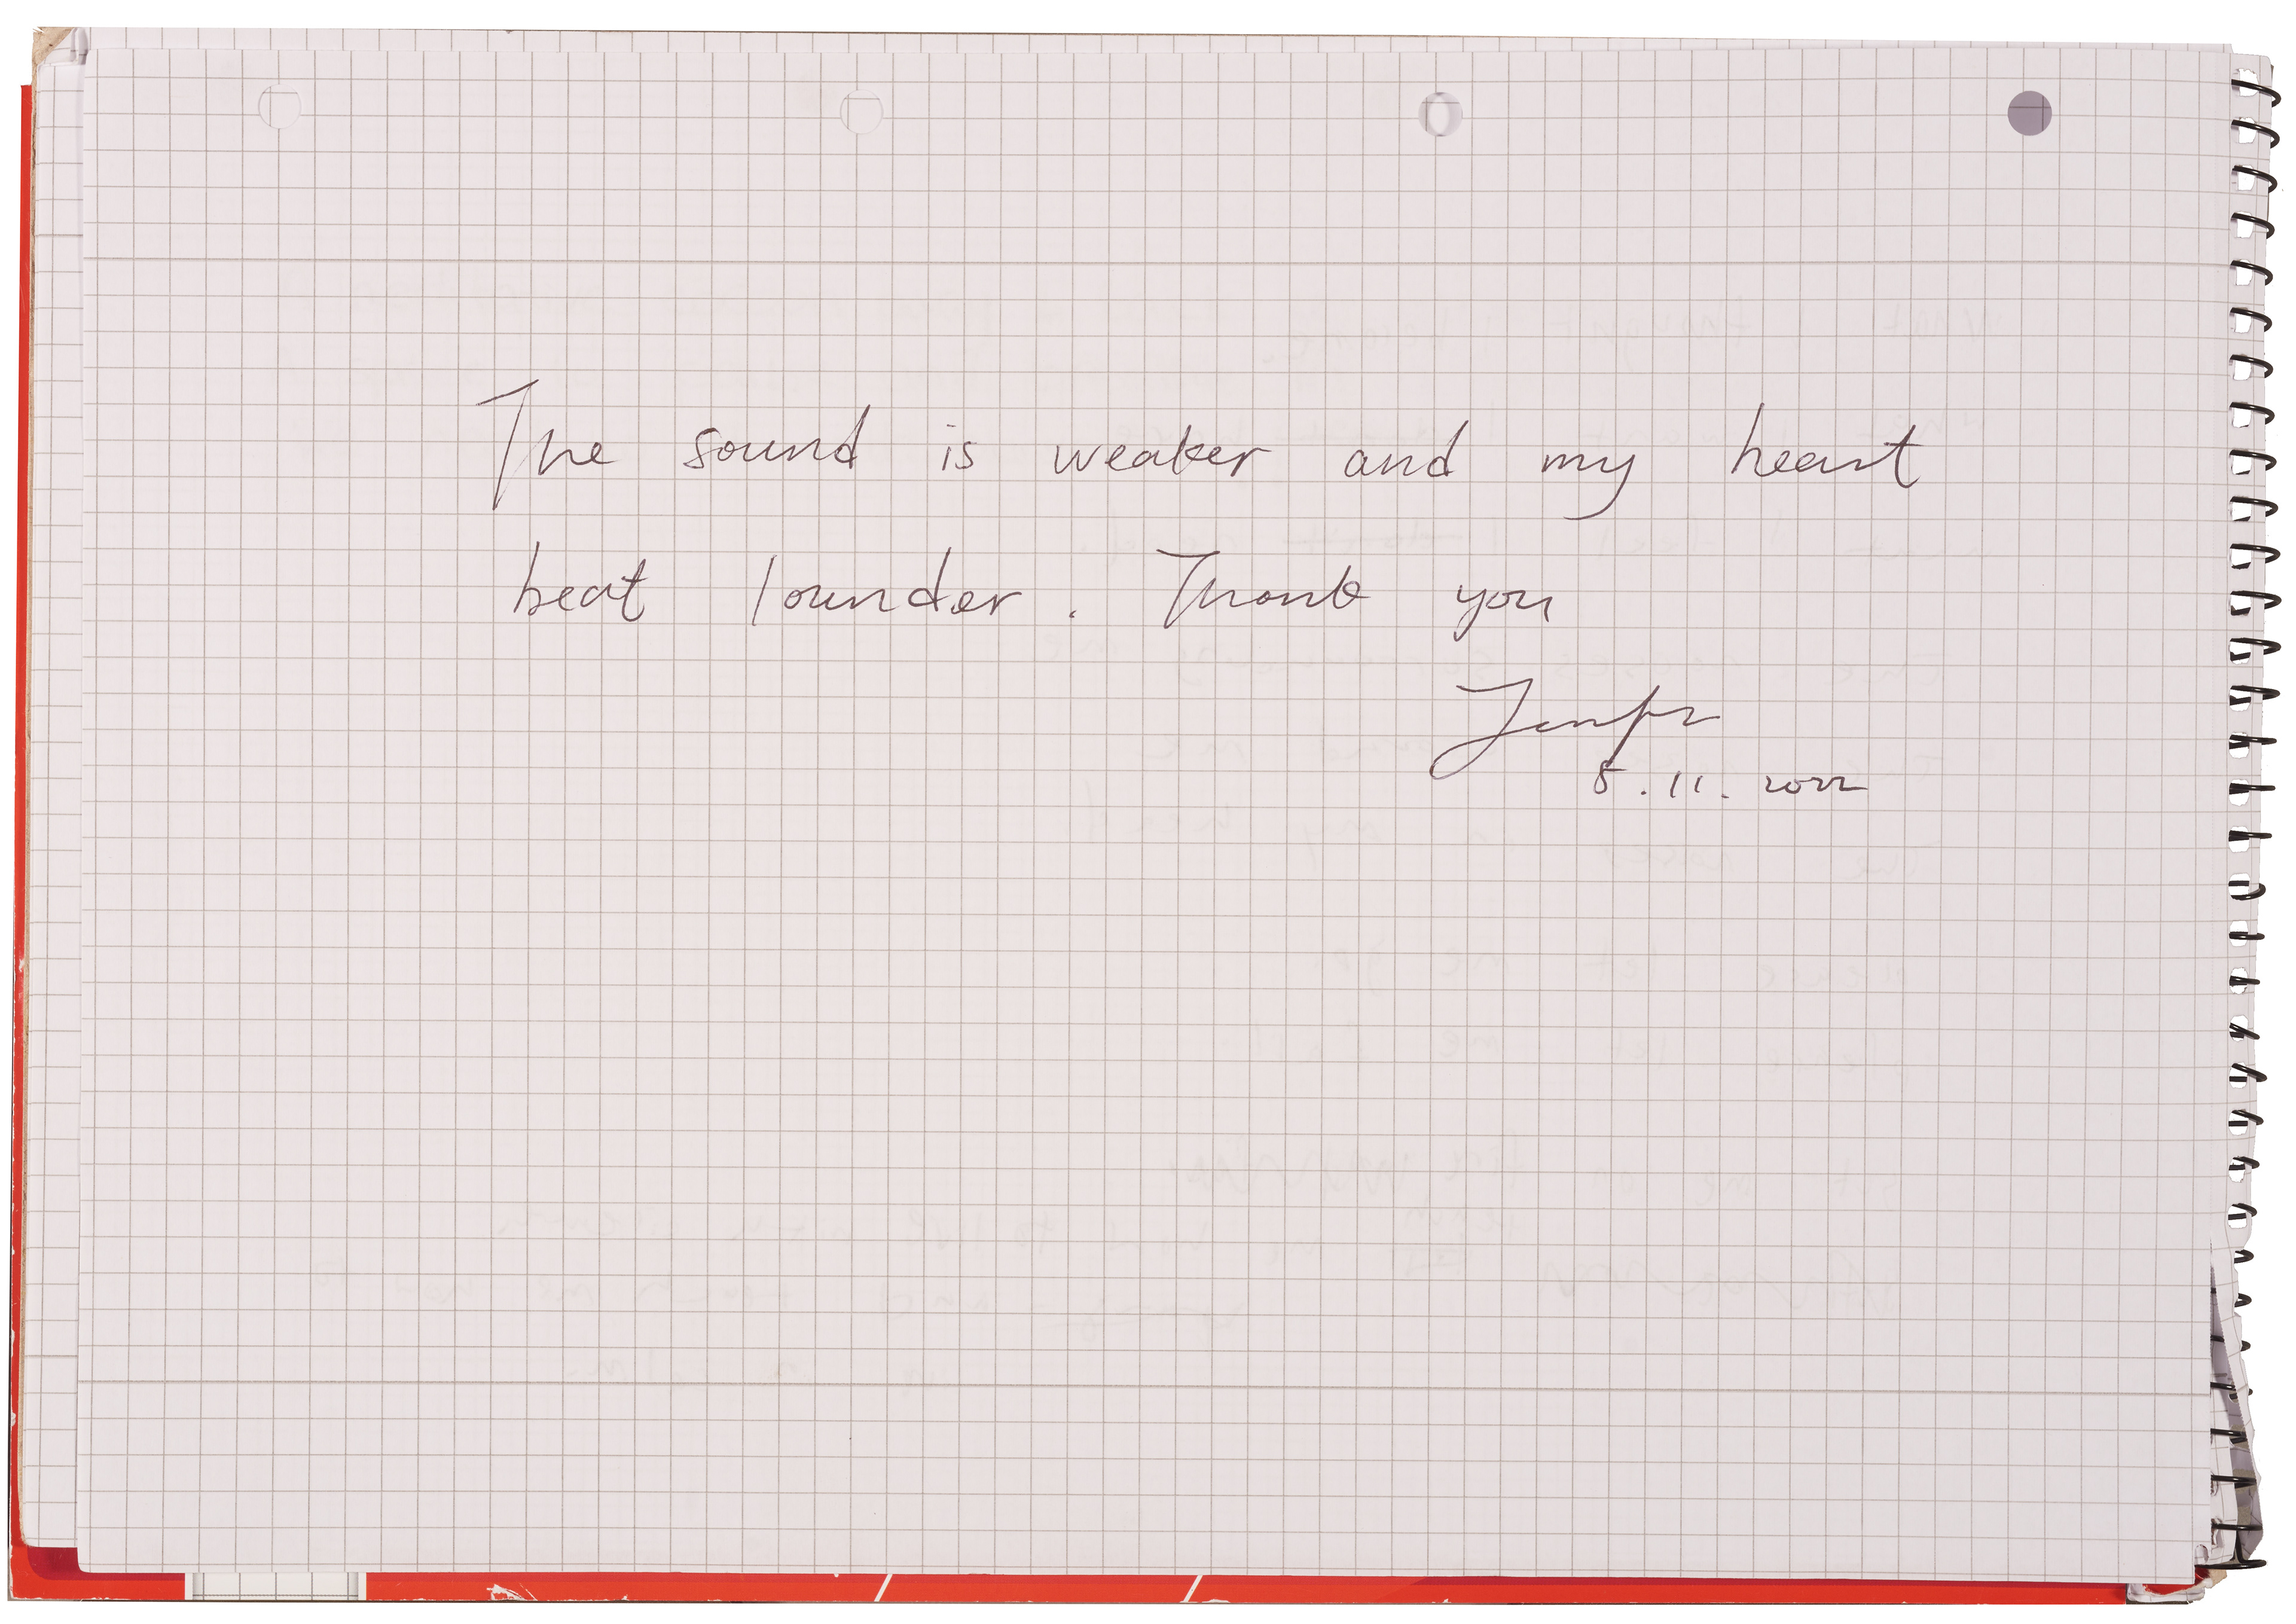 The sound is weaker and my heart
beat lounder. Thank you
5.11.2022